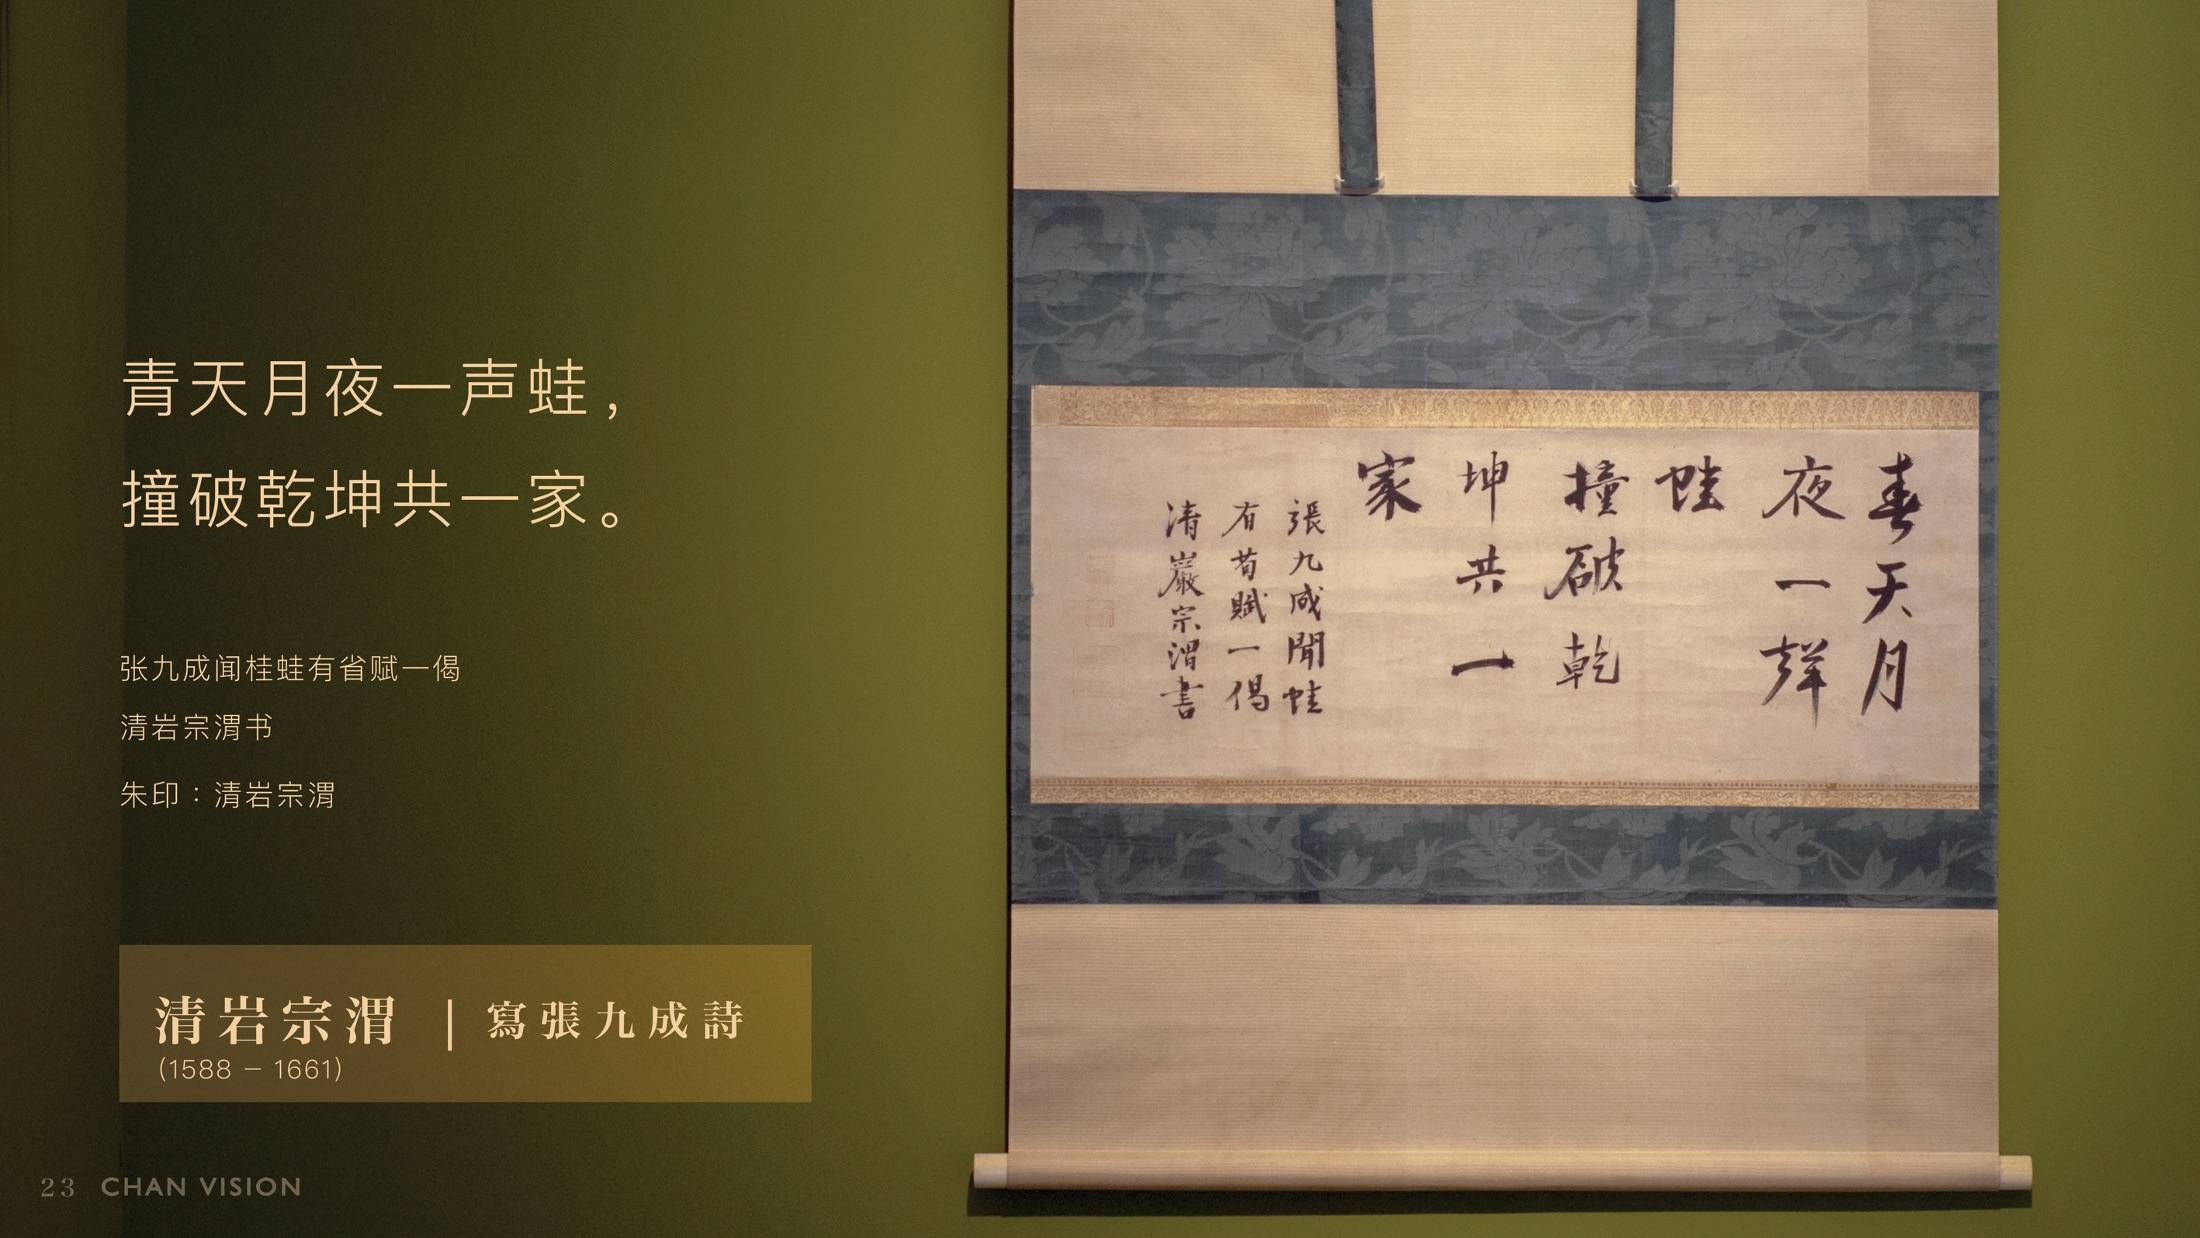 青天月夜一声蛙,
撞破乾坤共一家。
张九成闻桂蛙有省赋一偈
清岩宗渭书
朱印：清岩宗渭
清岩宗渭 | 寫張九成詩
(1588 – 1661)
23 CHAN VISION
春天月
夜一聲
蛙
撞破乾
坤共一
家
張九成聞蛙
有省賦一偈
清巖宗渭書